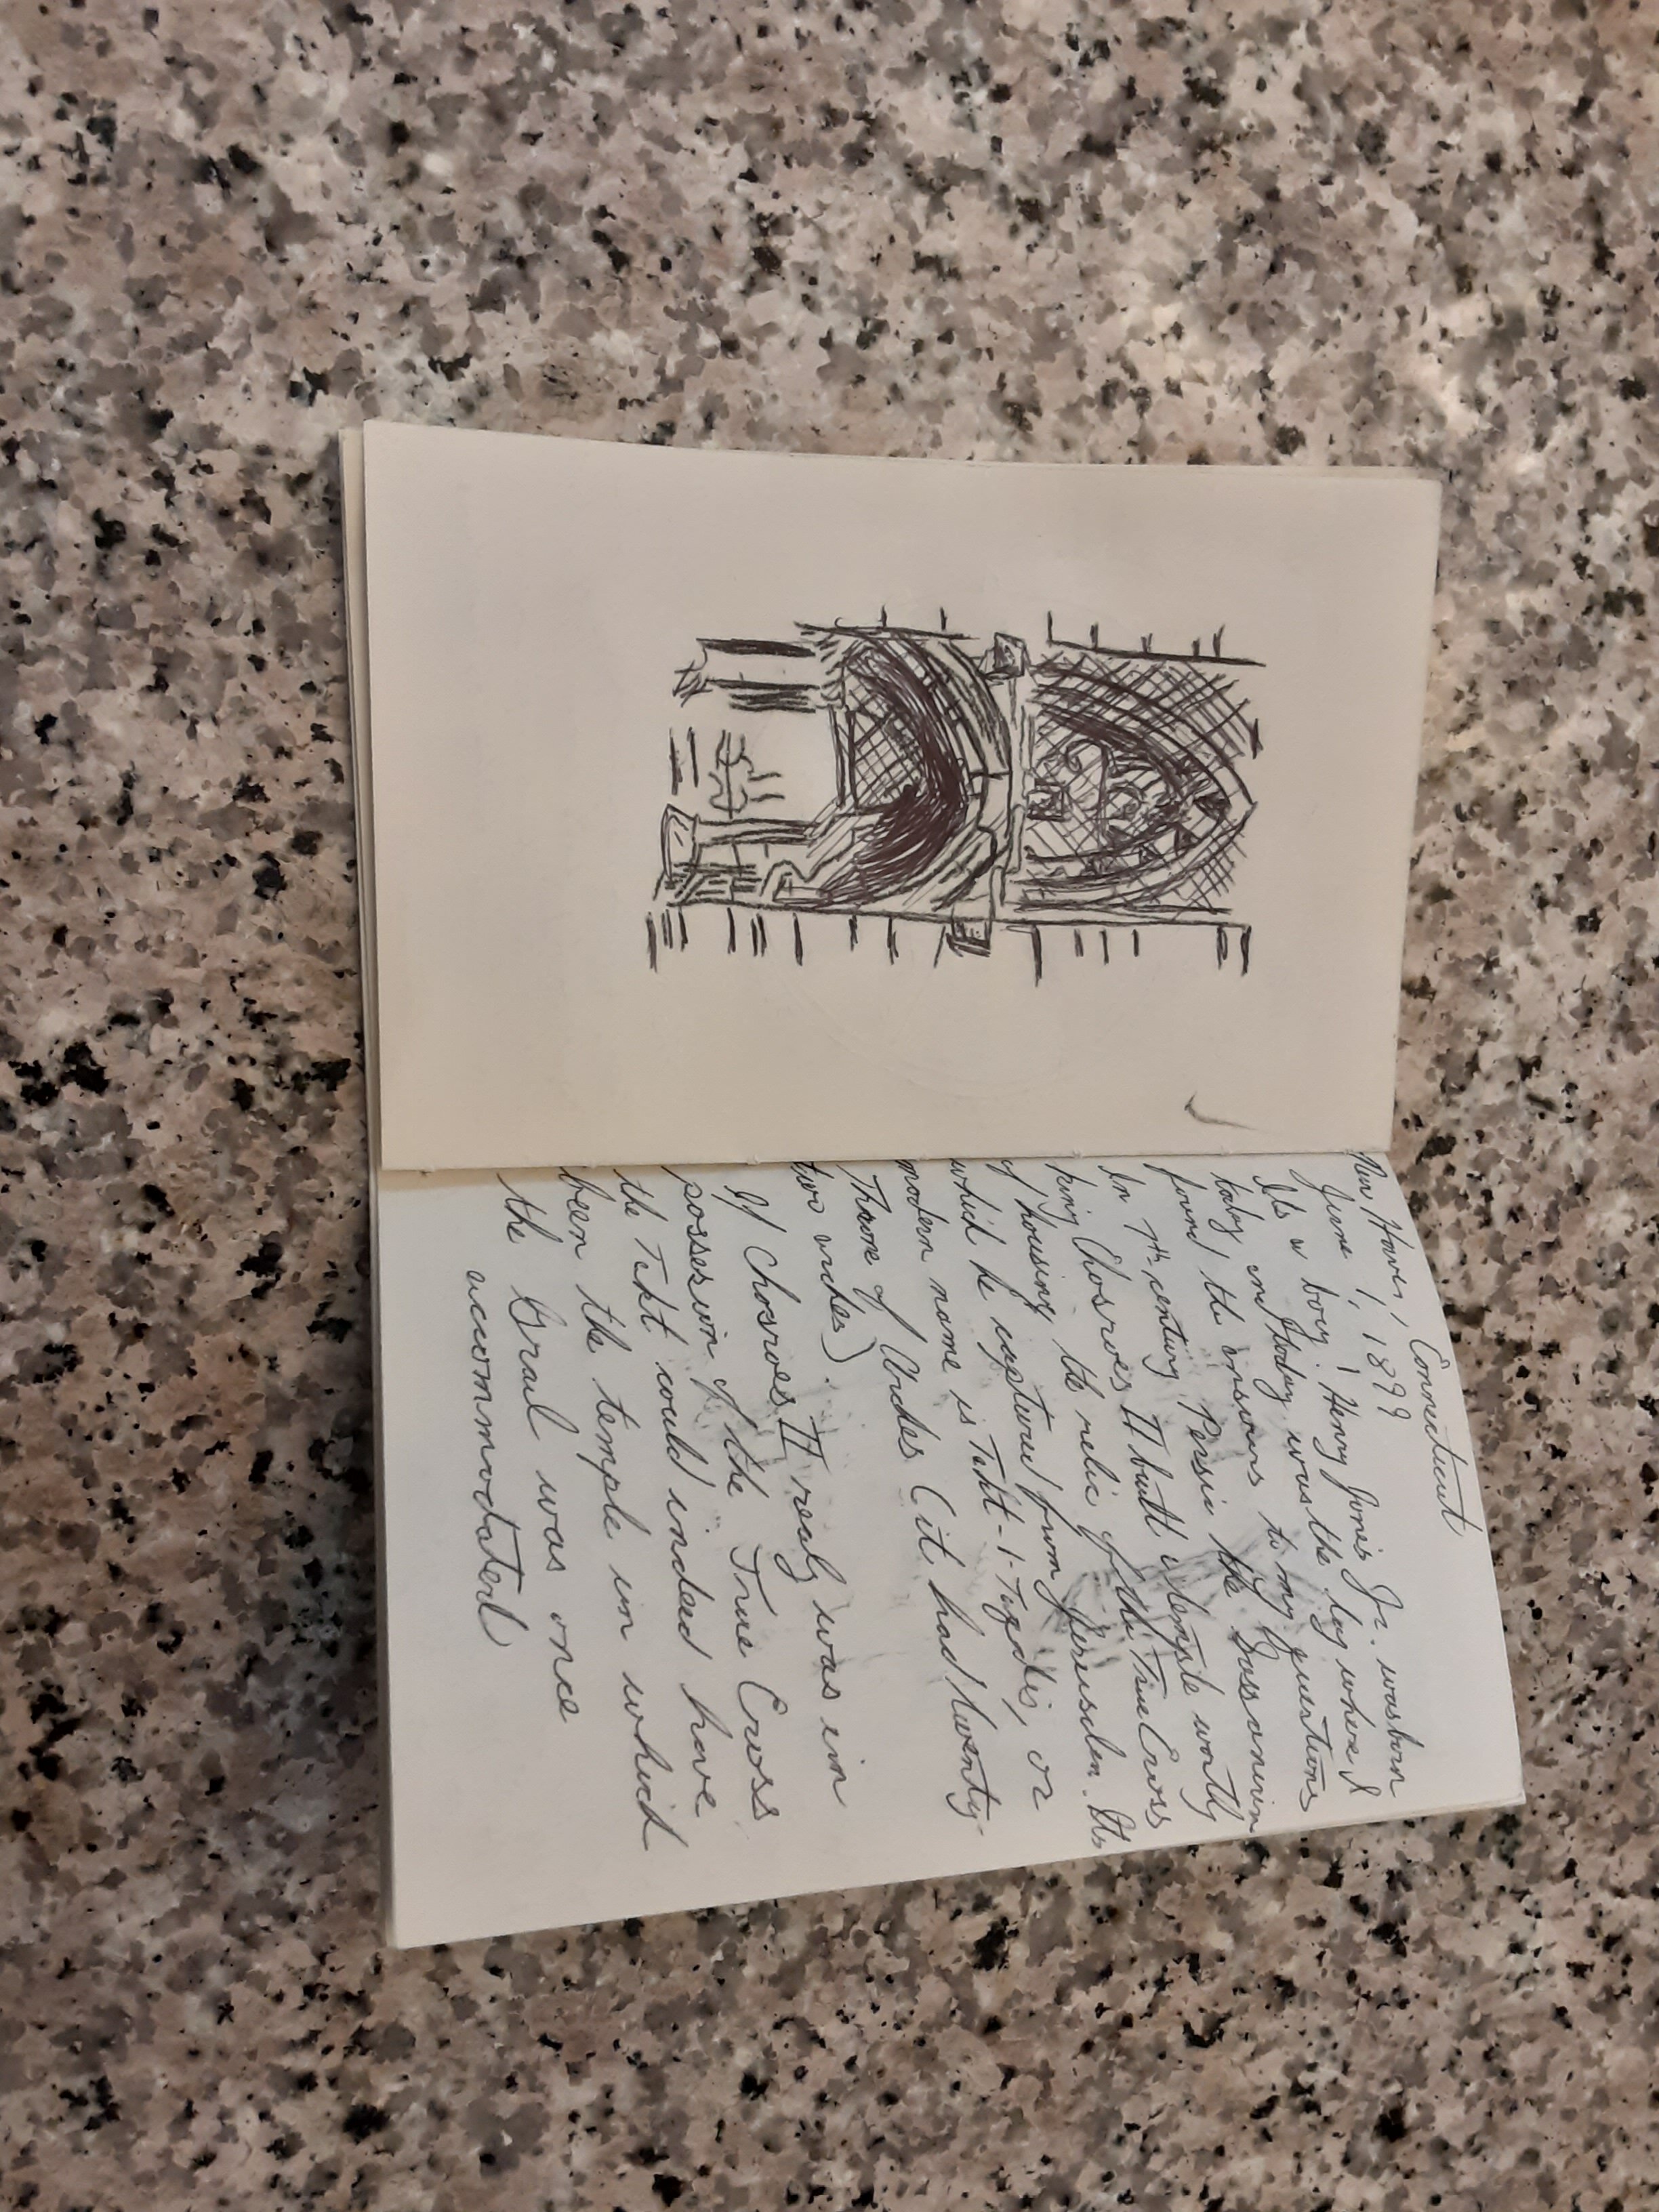 New Haven, Connecticut
June 1, 1899
It's a boy! Henry Jones Jr. was born
today and today was the day where I
found the answers to my questions
In 7th century Persia the Sassanian
King Chosroes II built a temple worthy
of housing the relic of the True Cross
which he captured from Jerusalem. Its
modern name is Takt-i-Taqdis, or
Throne of Arches (it had twenty-
two arches).
If Chosroes II realy was in
possession of the True Cross
the Takt could indeed have
been the temple in which
the Grail was once
accommodated